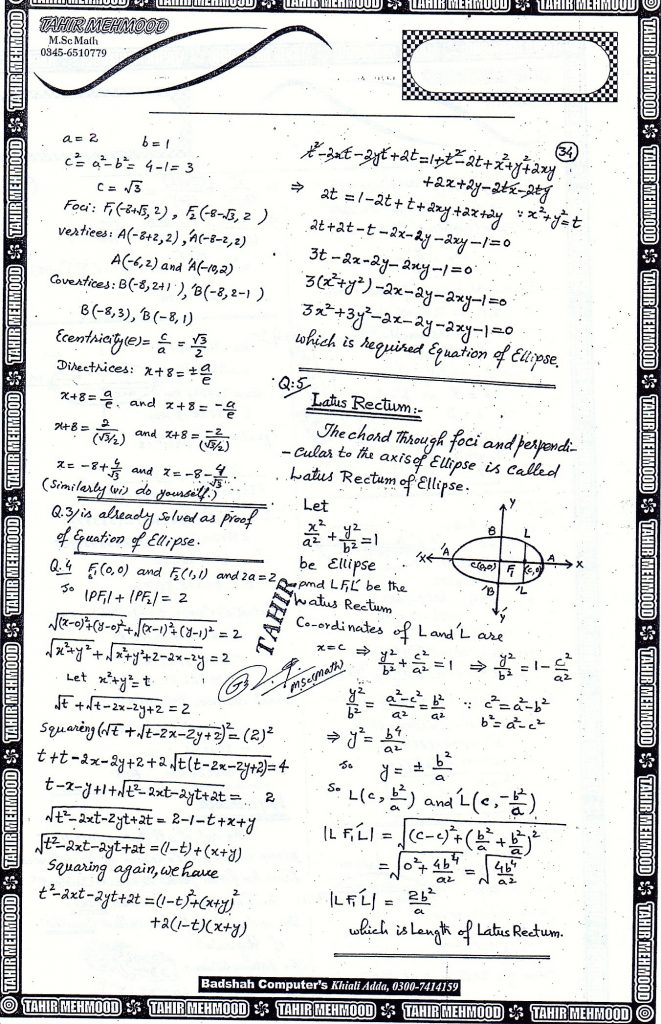 TAHIR MEHMOOD
M.Sc Math
0345-6510779
a = 2 b = 1
c² = a² - b² = 4 - 1 = 3
c = √3
Foci: F₁(-8+√3, 2), F₂(-8-√3, 2)
vertices: A(-8+2, 2), 'A(-8-2, 2)
A(-6, 2) and 'A(-10, 2)
Covertices: B(-8, 2+1), 'B(-8, 2-1)
B(-8, 3), 'B(-8, 1)
Eccentricity(e) = c/a = √3/2
Directrices: x+8 = ± a/e
x+8 = a/e and x+8 = -a/e
x+8 = 2/(√3/2) and x+8 = -2/(√3/2)
x = -8 + 4/√3 and x = -8 - 4/√3
(Similarly (vi) do yourself.)
Q.3/ is already solved as proof
of Equation of Ellipse.
Q.4 F₁(0,0) and F₂(1,1) and 2a = 2
So |PF₁| + |PF₂| = 2
√(x-0)²+(y-0)² + √(x-1)²+(y-1)² = 2
√x²+y² + √x²+y²+2-2x-2y = 2
Let x²+y² = t
√t + √t-2x-2y+2 = 2
Squaring (√t + √t-2x-2y+2)² = (2)²
t+t-2x-2y+2+2√t(t-2x-2y+2) = 4
t-x-y+1+√t²-2xt-2yt+2t = 2
√t²-2xt-2yt+2t = 2-1-t+x+y
√t²-2xt-2yt+2t = (1-t)+(x+y)
Squaring again, we have
t²-2xt-2yt+2t = (1-t)²+(x+y)²
+2(1-t)(x+y)
34
t²-2xt-2yt+2t = 1+t²-2t+x²+y²+2xy
+2x+2y-2tx-2ty
⇒ 2t = 1-2t+t+2xy+2x+2y ∵ x²+y²=t
2t+2t-t-2x-2y-2xy-1=0
3t-2x-2y-2xy-1=0
3(x²+y²)-2x-2y-2xy-1=0
3x²+3y²-2x-2y-2xy-1=0
which is required Equation of Ellipse.
Q:5/
Latus Rectum:-
The chord through foci and perpendi-
-cular to the axis of Ellipse is called
Latus Rectum of Ellipse.
Let
x²/a² + y²/b² = 1
be Ellipse
and LF₁'L be the
Latus Rectum
Y
B
L
'X
'A
C(0,0)
F₁
(c,0)
A
X
'B
'L
'Y
Co-ordinates of L and 'L are
x=c ⇒ y²/b² + c²/a² = 1 ⇒ y²/b² = 1 - c²/a²
y²/b² = a²-c²/a² = b²/a² ∵ c² = a²-b²
b² = a²-c²
⇒ y² = b⁴/a²
So y = ± b²/a
So L(c, b²/a) and 'L(c, -b²/a)
|LF₁'L| = √(c-c)²+(b²/a + b²/a)²
= √0²+4b⁴/a² = √4b⁴/a²
|LF₁'L| = 2b²/a
which is Length of Latus Rectum.
TAHIR
M.Sc(Math)
Badshah Computer's Khiali Adda, 0300-7414159
TAHIR MEHMOOD TAHIR MEHMOOD TAHIR MEHMOOD TAHIR MEHMOOD TAHIR MEHMOOD